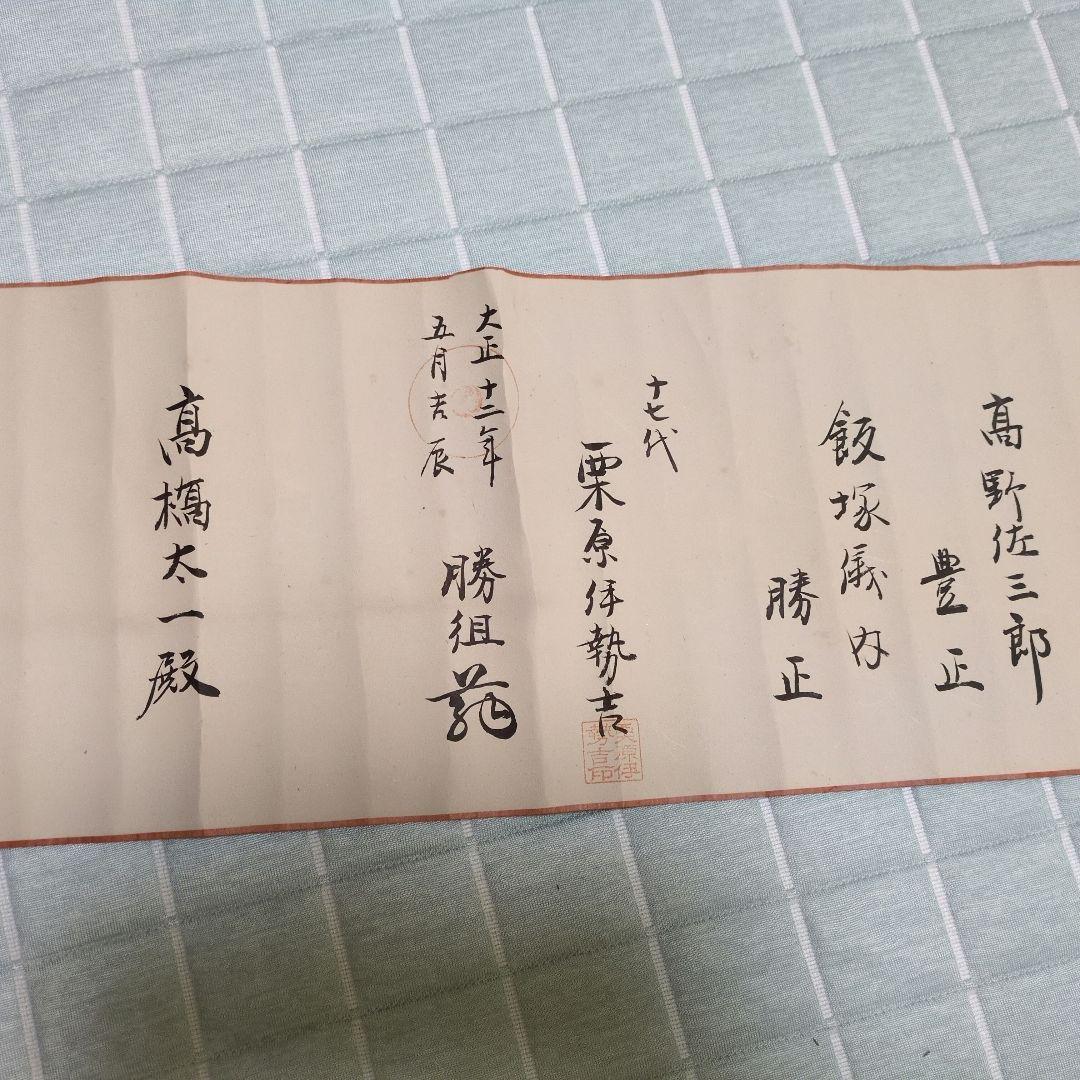 高野佐三郎
豊正
飯塚儀内
勝正
十七代
栗原伊勢吉
栗原伊勢吉印
大正十二年
五月吉辰
勝組
高橋太一殿